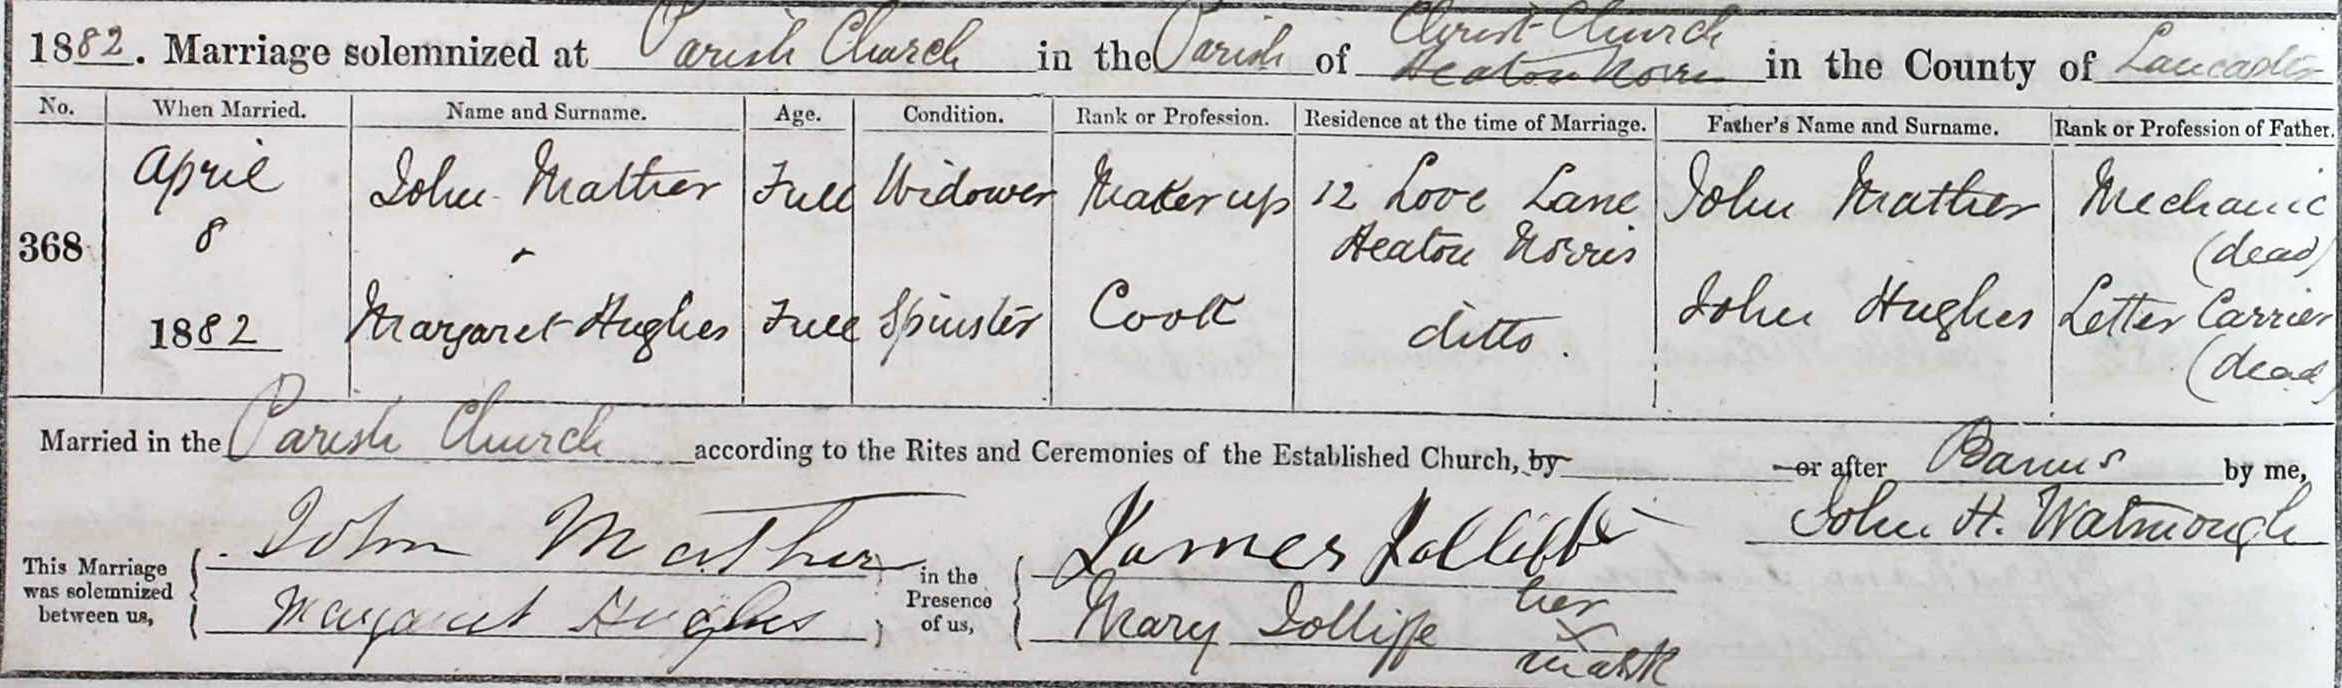 1882. Marriage solemnized at Parish Church in the Parish of Christ Church Heaton Norris in the County of Lancaster
No. When Married. Name and Surname. Age. Condition. Rank or Profession. Residence at the time of Marriage. Father's Name and Surname. Rank or Profession of Father.
April John Mather Full Widower Maker up 12 Love Lane John Mather Mechanic
368 8 Heaton Norris (dead)
1882 Margaret Hughes Full Spinster Cook ditto. John Hughes Letter Carrier
(dead)
Married in the Parish Church according to the Rites and Ceremonies of the Established Church, by or after Banns by me,
John H. Watmough
This Marriage was solemnized between us, John Mather in the Presence of us, James Jolliffe
Margaret Hughes Mary Jolliffe her x mark